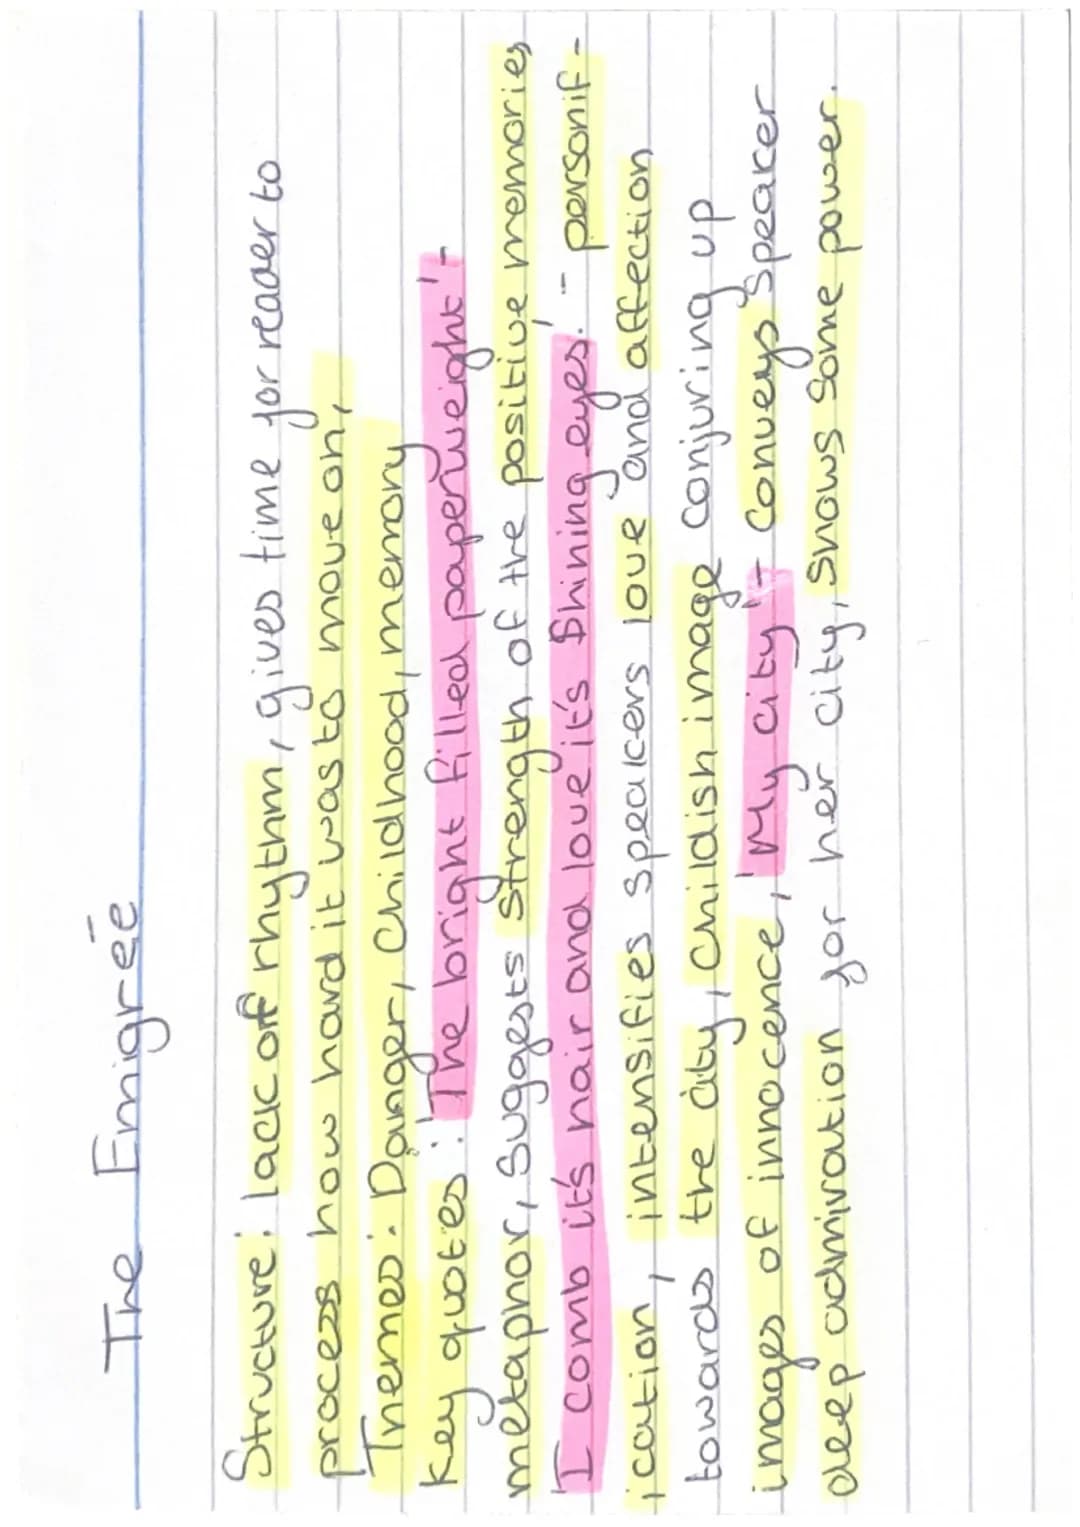 The Emigreé
Structure: lack of rhythm, gives time for reader to
process how hard it was to move on,
Themes: Danger, Childhood, memory
Key quotes: 'The bright filled paperweight' -
metaphor, Suggests strength of the positive memories
'I comb it's hair and love it's shining eyes.' - personif-
ication, intensifies speakers love and affection
towards the city, childish image conjuring up
images of innocence, 'My city' - conveys speaker
deep admiration for her city, shows some power.